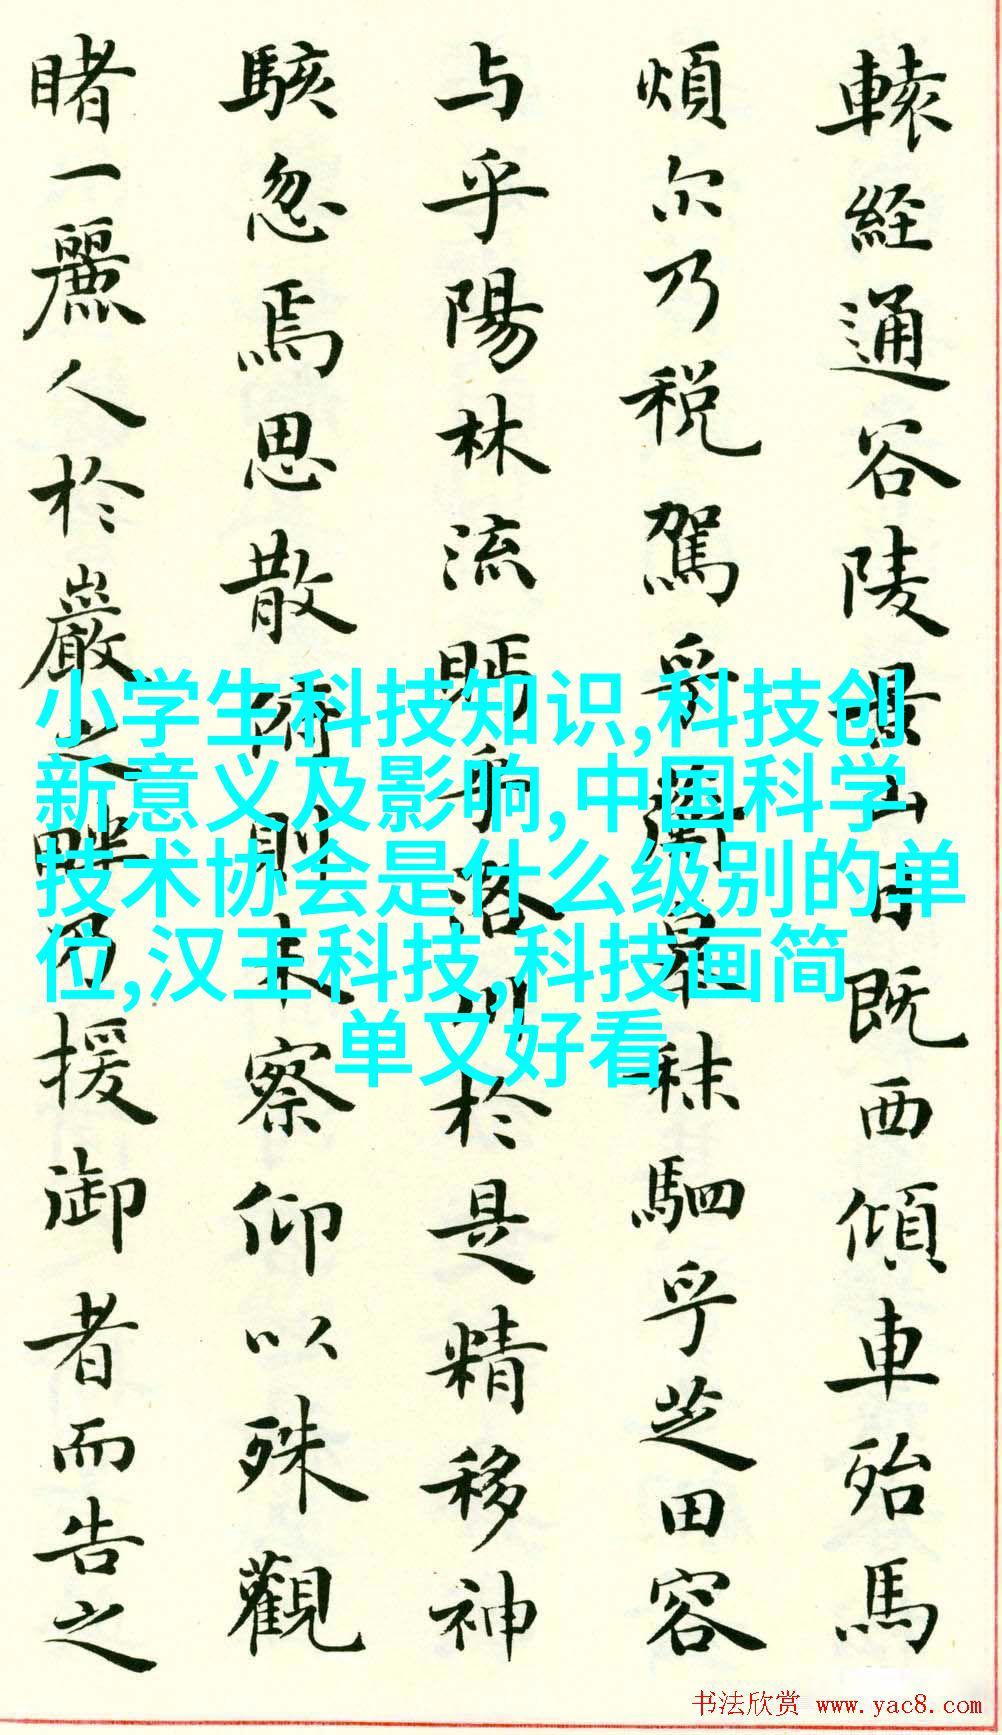 轅経通谷陵景山日既西傾車殆馬
煩尔乃税駕乎蘅皋秣駟乎芝田容
与乎陽林流眄乎洛川於是精移神
駭忽焉思散俯則未察仰以殊觀
睹一麗人於巖之畔乃援御者而告之
小学生科技知识,科技创
新意义及影响,中国科学
技术协会是什么级别的单
位,汉王科技,科技画简
单又好看
书法欣赏 www.yac8.com